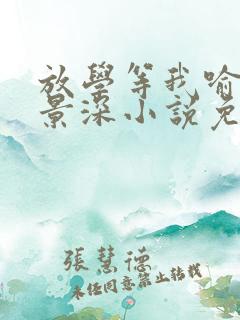 放學等我喻
景深小說免
張慧德
未经同意禁止转载